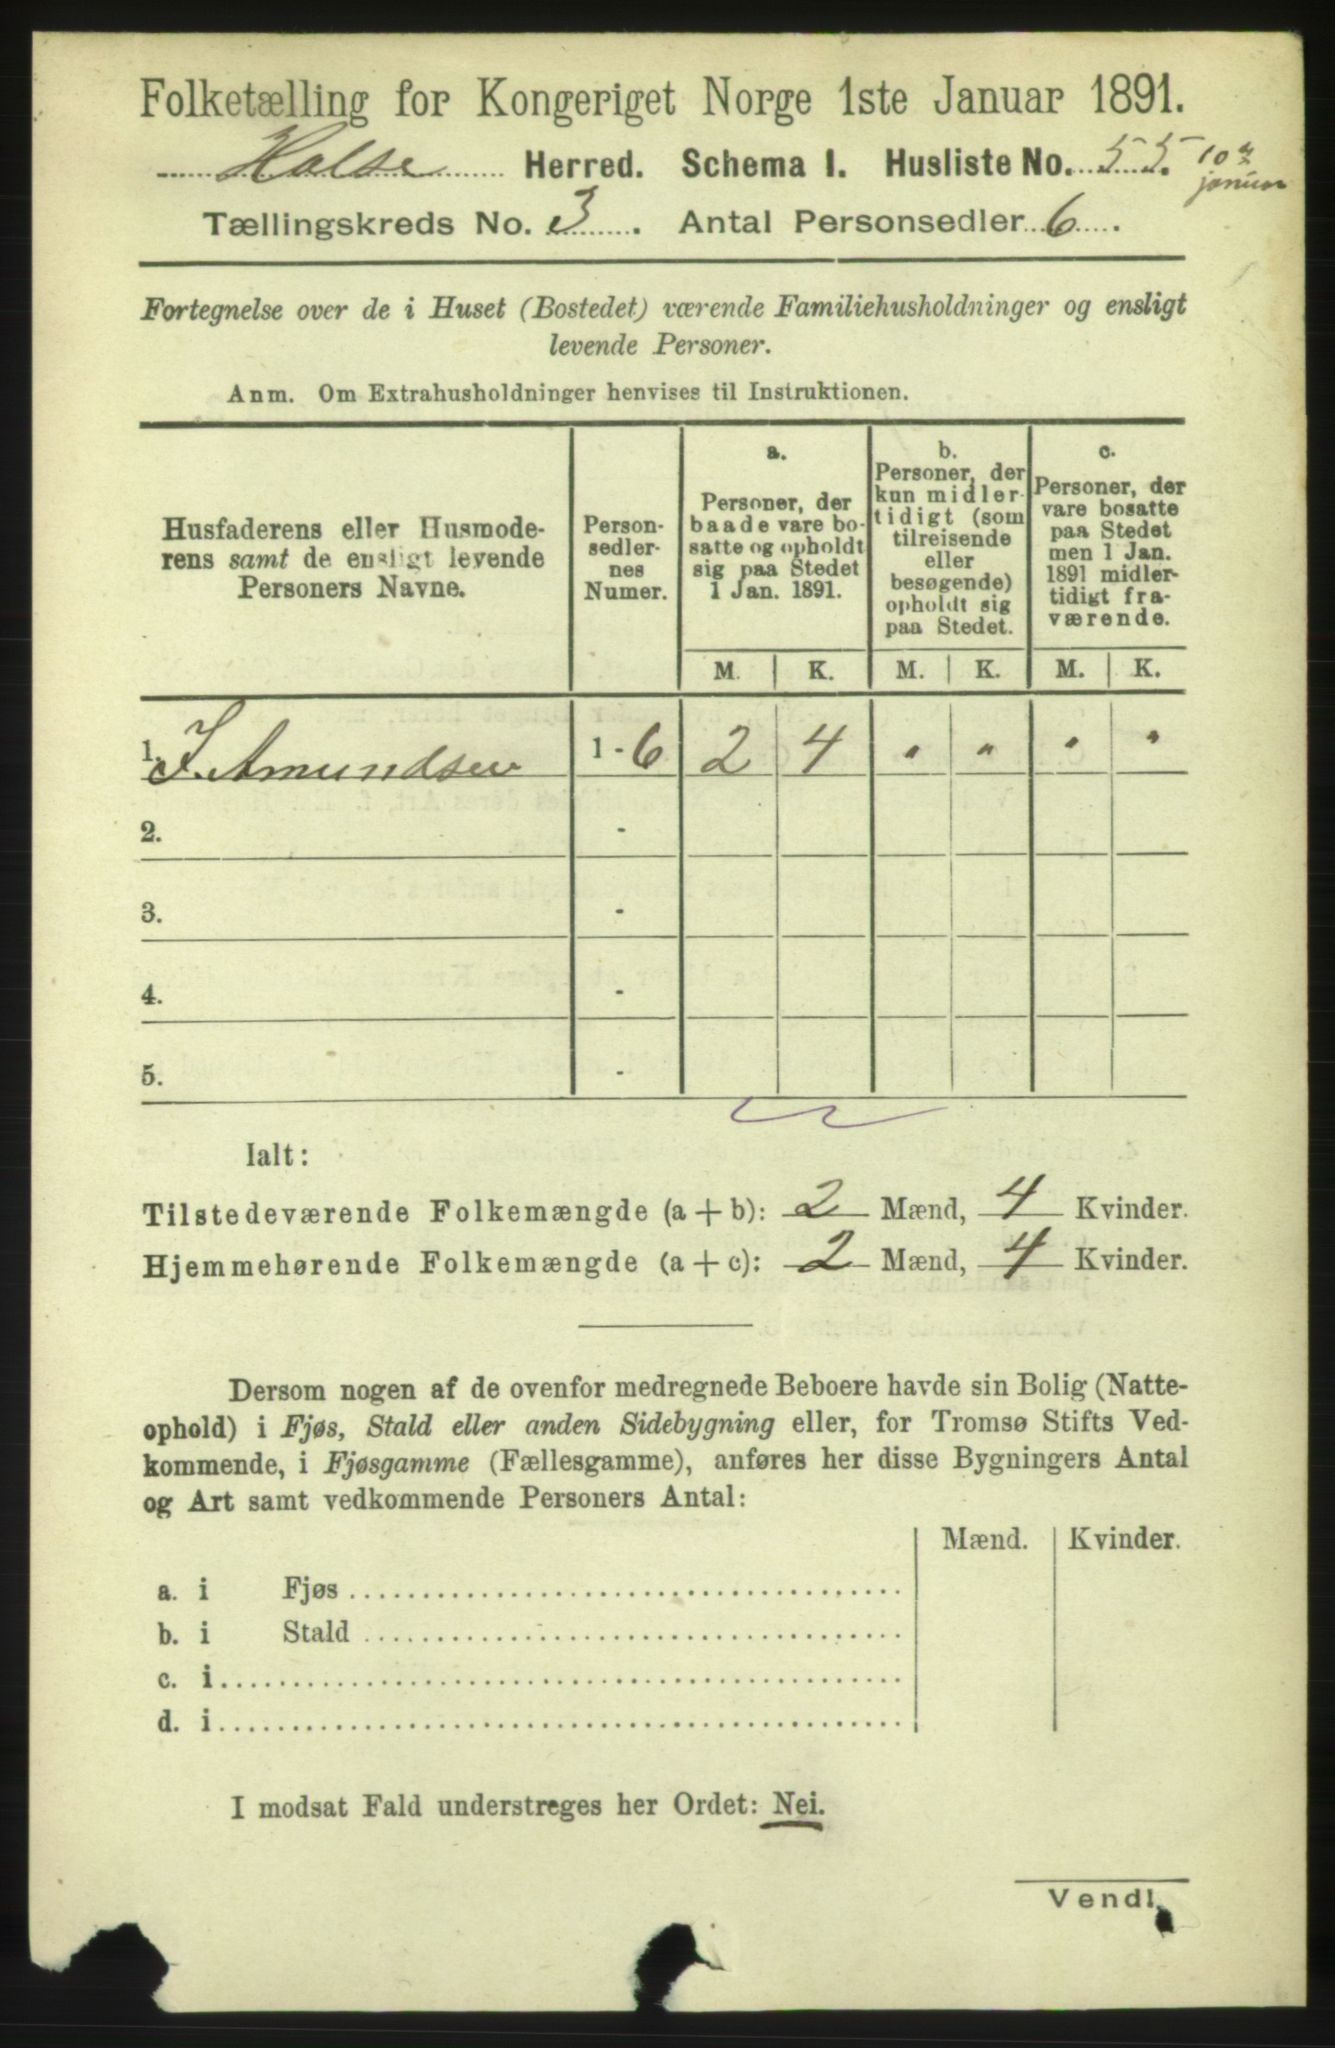 Folketælling for Kongeriget Norge 1ste Januar 1891.
Halse Herred. Schema I. Husliste No. 55. 10de januar
Tællingskreds No. 3. Antal Personsedler 6.
Fortegnelse over de i Huset (Bostedet) værende Familiehusholdninger og ensligt
levende Personer.
Anm. Om Extrahusholdninger henvises til Instruktionen.
Husfaderens eller Husmode-
rens samt de ensligt levende
Personers Navne.
Person-
sedler-
nes
Numer.
a.
Personer, der
baade vare bo-
satte og opholdt
sig paa Stedet
1 Jan. 1891.
b.
Personer, der
kun midler-
tidigt (som
tilreisende
eller
besøgende)
opholdt sig
paa Stedet.
c.
Personer, der
vare bosatte
paa Stedet
men 1 Jan.
1891 midler-
tidigt fra-
værende.
M. K. M. K. M. K.
1. J. Amundsen 1 - 6 2 4 " " " "
2. -
3. -
4. -
5. -
Ialt:
Tilstedeværende Folkemængde (a + b): 2 Mænd, 4 Kvinder.
Hjemmehørende Folkemængde (a + c): 2 Mænd, 4 Kvinder.
Dersom nogen af de ovenfor medregnede Beboere havde sin Bolig (Natte-
ophold) i Fjøs, Stald eller anden Sidebygning eller, for Tromsø Stifts Ved-
kommende, i Fjøsgamme (Fællesgamme), anføres her disse Bygningers Antal
og Art samt vedkommende Personers Antal:
Mænd. Kvinder.
a. i Fjøs
b. i Stald
c. i
d. i
I modsat Fald understreges her Ordet: Nei.
Vend!